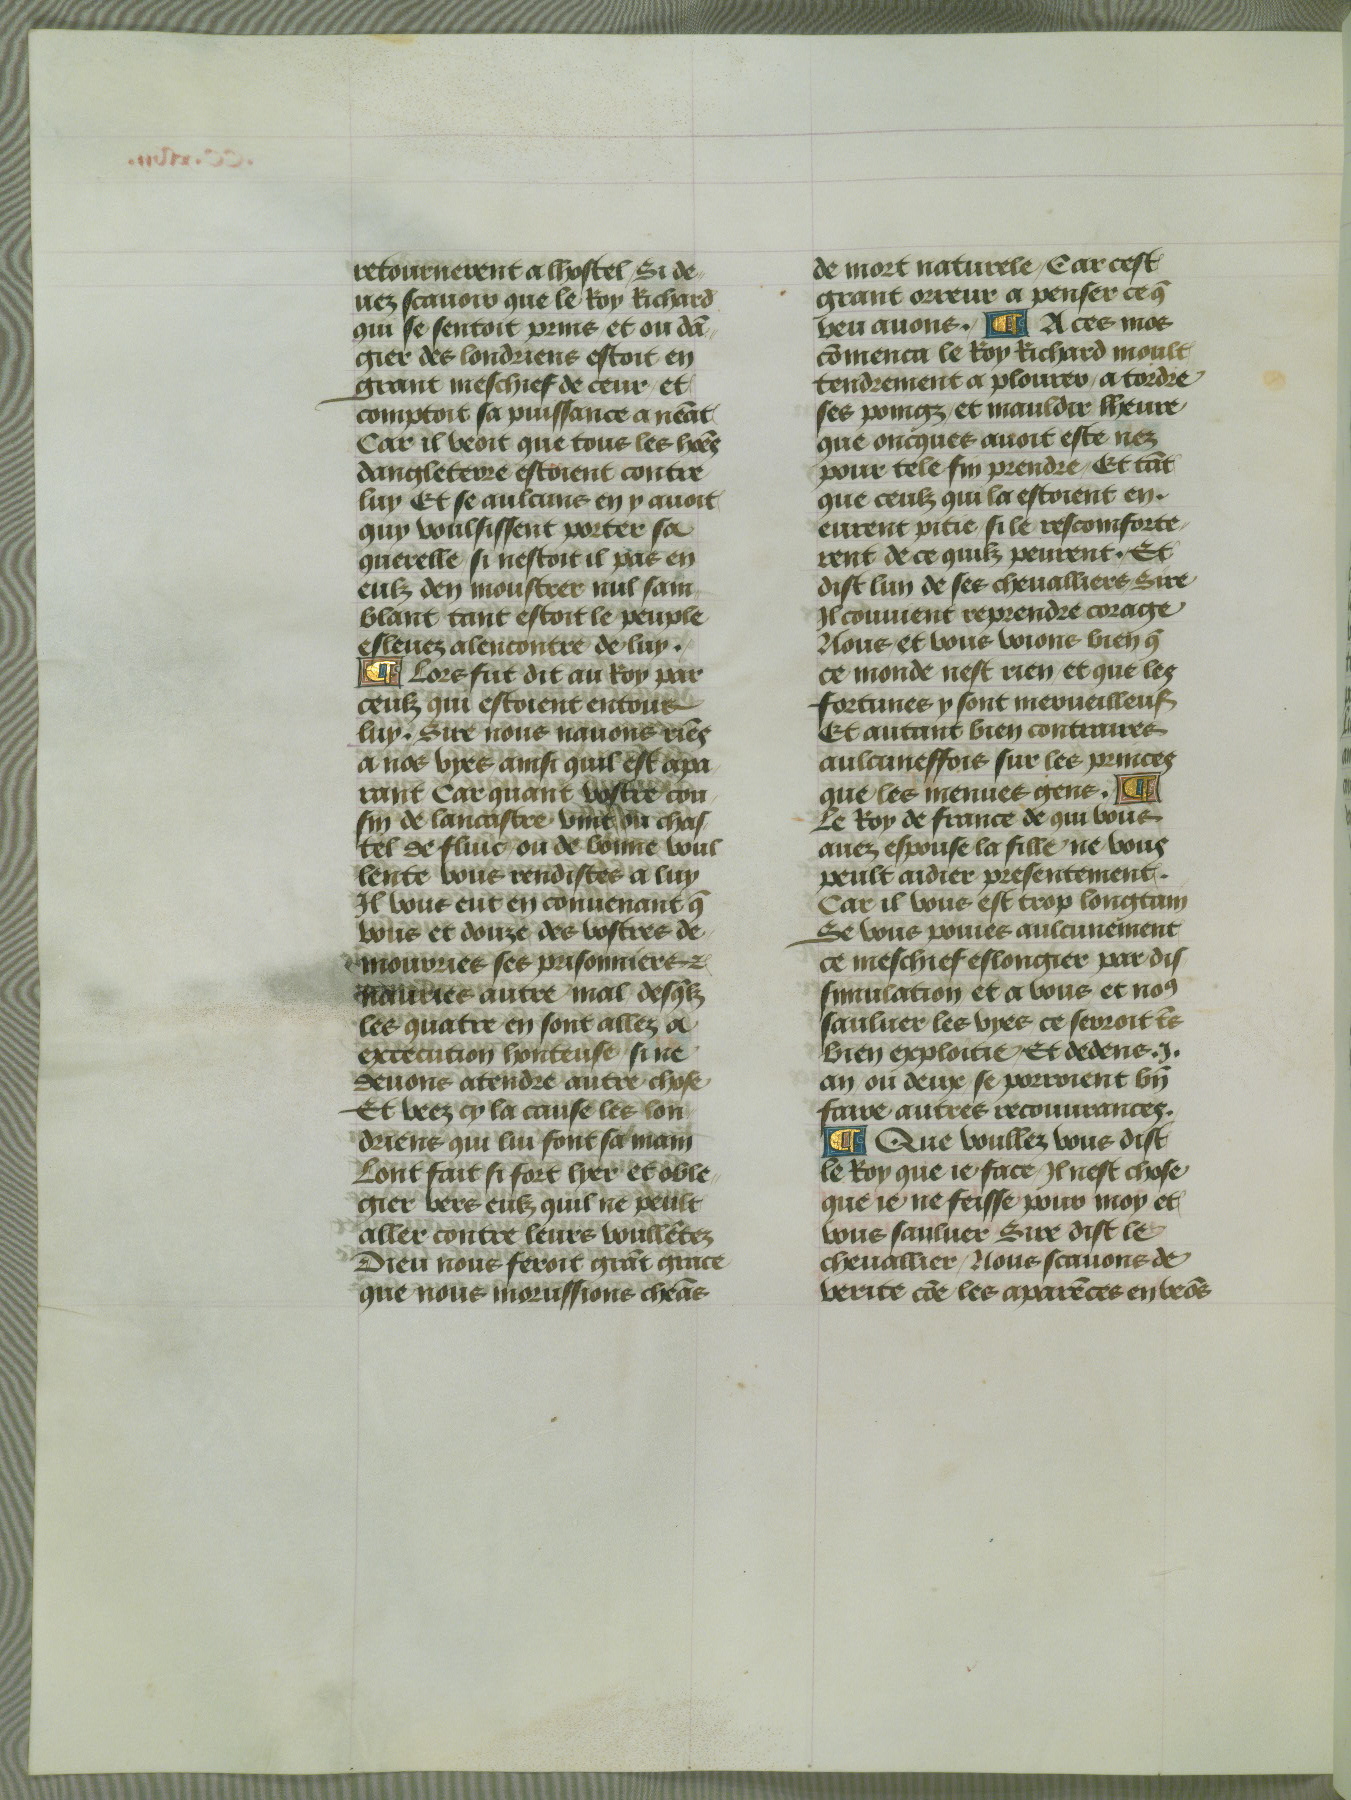 retournerent a lhostel / Si de-
uez scauoir que le Roy Richard
qui se sentoit prins et ou dā-
gier des londriens estoit en
grant meschief de ceur / et
comptoit sa puissance a neāt
Car il veoit que tous les hōēs
dangleterre estoient contre
luy Et se aulcuns en y auoit
quy voulsissent porter sa
querelle / si nestoit il pas en
eulz den moustrer nul sam-
blant tant estoit le peuple
esleuez alencontre de luy .
¶ Lors fut dit au Roy par
ceulz qui estoient entour
luy . Sire nous nauons riēs
a nos vyes ainsi quil est apa
rant Car quant vostre cou
sin de lancastre vint ou chas
tel de fluic / ou de bonne voul
lente vous rendistes a luy
Il vous eut en conuenant q̄
vous et douze des vostres de
mouries ses prisonniers ⁊
nauries autre mal desq̄lz
les quatre en sont allez a
excecution honteuse / si ne
deuons atendre autre chose
Et veez cy la cause les lon
driens qui lui font sa main
Lont fait si fort lyer et oble-
gier vers eulz quil ne peult
aller contre leurs voullētez
Dieu nous feroit grāt grace
que nous morussions cheās
de mort naturele / Car cest
grant orreur a penser ce q̄
veu auons . ¶ A ces mos
cōmenca le Roy Richard moult
tendrement a plourer / a tordre
ses poingz / et mauldir lheure
que oncques auoit este nez
pour tele fin prendre / Et tāt
que ceulz qui la estoient en .
eurent pitie / si le rescomforte-
rent de ce quilz peurent . Et
dist lun de ses cheualliers Sire
Il couuient reprendre corage
Nous et vous voions bien q̄
ce monde nest rien / et que les
fortunes y sont merueilleus
Et autant bien contraires
aulcuneffois sur les princes
que les menues gens . ¶
Le Roy de france de qui vous
auez espouse la fille / ne vous
peult aidier presentement .
Car il vous est trop longtain
Se vous pouies aulcunement
ce meschief eslongier par dis
simulation et a vous et noꝰ
sauluer les vyes ce seroit t̄s
bien exploitie / Et dedens .j.
an ou deux se porroient bn̄
faire autres recouurances .
¶ Que voullez vous dist
le Roy que ie face / Il nest chose
que ie ne feisse pour moy et
vous sauluer Sire dist le
cheuallier / Nous scauons de
verite cōe les aparēces en veōs